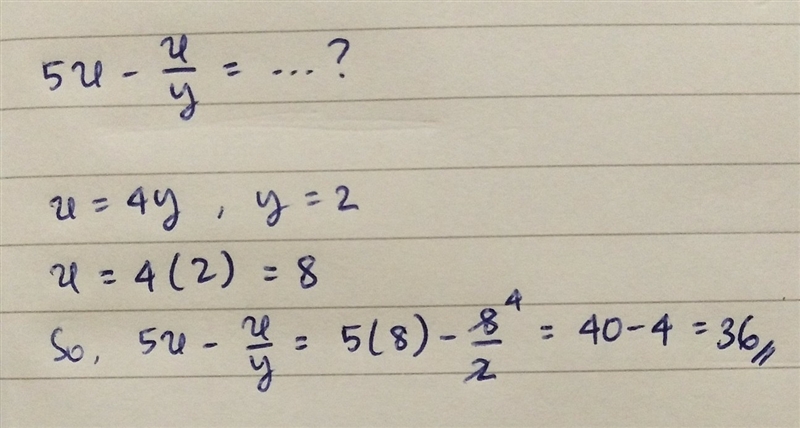 5x - x/y = ...?
x = 4y , y = 2
x = 4(2) = 8
So, 5x - x/y = 5(8) - 8/2 4 = 40 - 4 = 36//